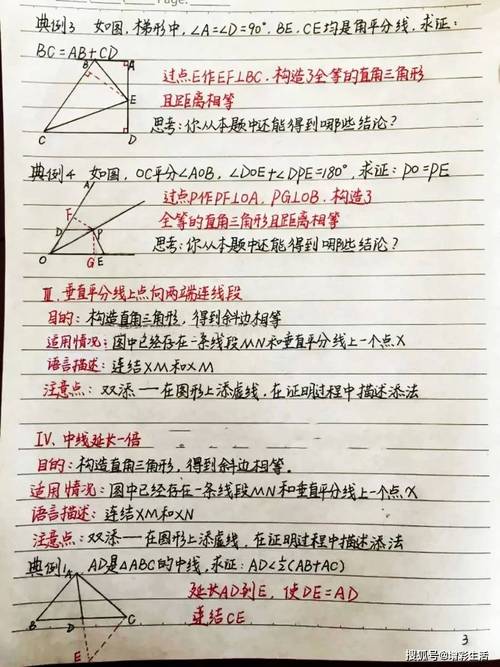 Page:
典例3 如图,梯形中,∠A=∠D=90°,BE、CE均是角平分线,求证:
BC=AB+CD
B A
过点E作EF⊥BC,构造了全等的直角三角形
E
且距离相等
思考:你从本题中还能得到哪些结论?
C D
典例4 如图,OC平分∠AOB,∠DOE+∠DPE=180°,求证:PD=PE
A
过点P作PF⊥OA,PG⊥OB,构造了
F
全等的直角三角形且距离相等
D P
思考:你从本题中还能得到哪些结论?
O G E
Ⅲ、垂直平分线上点向两端连线段
目的:构造直角三角形,得到斜边相等
适用情况:图中已经存在一条线段MN和垂直平分线上一个点X
语言描述:连结XM和XM
注意点:双添——在图形上添虚线,在证明过程中描述添法
Ⅳ、中线延长一倍
目的:构造直角三角形,得到斜边相等。
适用情况:图中已经存在一条线段MN和垂直平分线上一个点X
语言描述:连结XM和XN
注意点:双添——在图形上添虚线,在证明过程中描述添法
典例1 AD是△ABC的中线,求证:AD<½(AB+AC)
A
延长AD到E,使DE=AD
连结CE
B D C
E
3
搜狐号@增彩生活